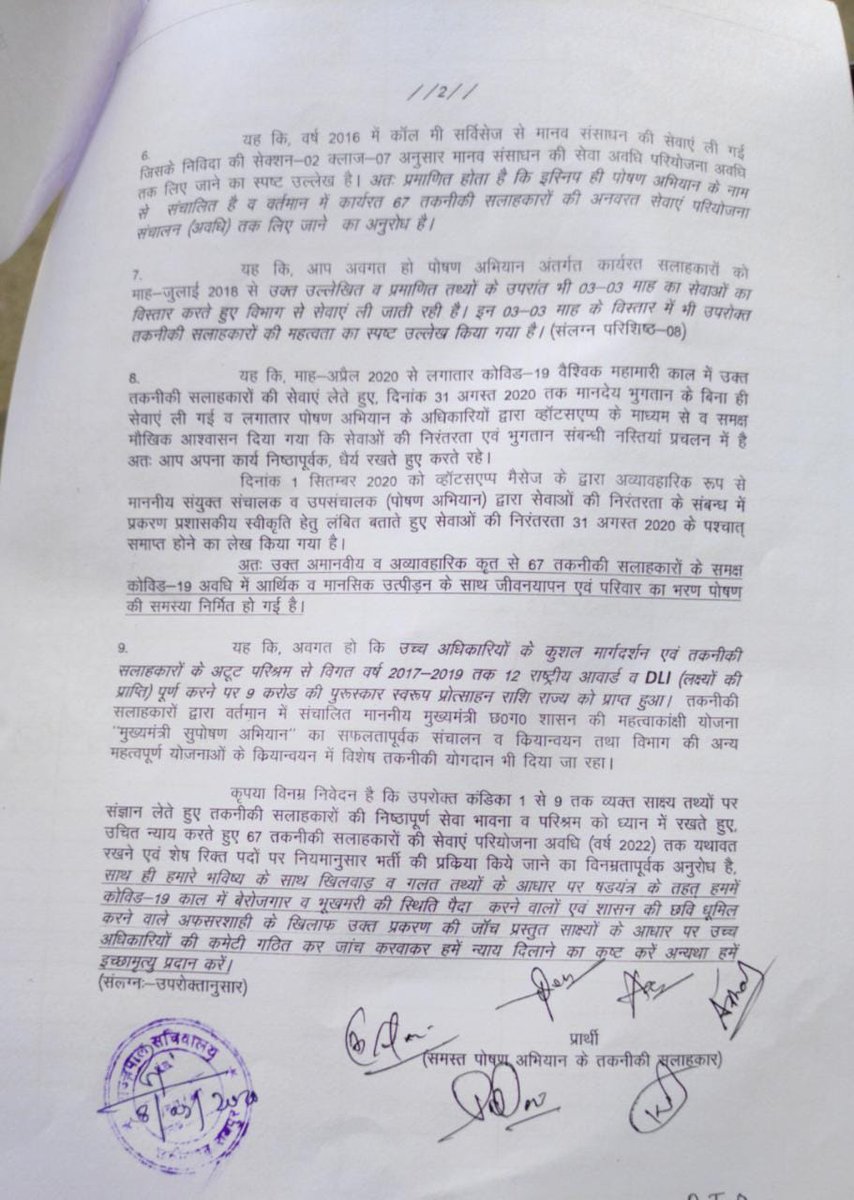 //2//
6. यह कि, वर्ष 2016 में कॉल मी सर्विसेज से मानव संसाधन की सेवाएं ली गई
जिसके निविदा की सेक्शन–02 क्लाज–07 अनुसार मानव संसाधन की सेवा अवधि परियोजना अवधि
तक लिए जाने का स्पष्ट उल्लेख है। अतः प्रमाणित होता है कि इस्निप ही पोषण अभियान के नाम
से संचालित है व वर्तमान में कार्यरत 67 तकनीकी सलाहकारों की अनवरत सेवाएं परियोजना
संचालन (अवधि) तक लिए जाने का अनुरोध है।
7. यह कि, आप अवगत हो पोषण अभियान अंतर्गत कार्यरत सलाहकारों को
माह–जुलाई 2018 से उक्त उल्लेखित व प्रमाणित तथ्यों के उपरांत भी 03–03 माह का सेवाओं का
विस्तार करते हुए विभाग से सेवाएं ली जाती रही है। इन 03–03 माह के विस्तार में भी उपरोक्त
तकनीकी सलाहकारों की महत्वता का स्पष्ट उल्लेख किया गया है। (संलग्न परिशिष्ठ–08)
8. यह कि, माह–अप्रैल 2020 से लगातार कोविड–19 वैश्विक महामारी काल में उक्त
तकनीकी सलाहकारों की सेवाएं लेते हुए, दिनांक 31 अगस्त 2020 तक मानदेय भुगतान के बिना ही
सेवाएं ली गई व लगातार पोषण अभियान के अधिकारियों द्वारा व्हॉटसएप्प के माध्यम से व समक्ष
मौखिक आश्वासन दिया गया कि सेवाओं की निरंतरता एवं भुगतान संबन्धी नस्तियां प्रचलन में है
अतः आप अपना कार्य निष्ठापूर्वक, धैर्य रखते हुए करते रहे।
दिनांक 1 सितम्बर 2020 को व्हॉटसएप्प मैसेज के द्वारा अव्यावहारिक रूप से
माननीय संयुक्त संचालक व उपसंचालक (पोषण अभियान) द्वारा सेवाओं की निरंतरता के संबन्ध में
प्रकरण प्रशासकीय स्वीकृति हेतु लंबित बताते हुए सेवाओं की निरंतरता 31 अगस्त 2020 के पश्चात्
समाप्त होने का लेख किया गया है।
अतः उक्त अमानवीय व अव्यावहारिक कृत से 67 तकनीकी सलाहकारों के समक्ष
कोविड–19 अवधि में आर्थिक व मानसिक उत्पीड़न के साथ जीवनयापन एवं परिवार का भरण पोषण
की समस्या निर्मित हो गई है।
9. यह कि, अवगत हो कि उच्च अधिकारियों के कुशल मार्गदर्शन एवं तकनीकी
सलाहकारों के अटूट परिश्रम से विगत वर्ष 2017–2019 तक 12 राष्ट्रीय आवार्ड व DLI (लक्ष्यों की
प्राप्ति) पूर्ण करने पर 9 करोड की पुरूस्कार स्वरूप प्रोत्साहन राशि राज्य को प्राप्त हुआ। तकनीकी
सलाहकारों द्वारा वर्तमान में संचालित माननीय मुख्यमंत्री छ0ग0 शासन की महत्वाकांक्षी योजना
"मुख्यमंत्री सुपोषण अभियान" का सफलतापूर्वक संचालन व कियान्वयन तथा विभाग की अन्य
महत्वपूर्ण योजनाओं के कियान्वयन में विशेष तकनीकी योगदान भी दिया जा रहा।
कृपया विनम्र निवेदन है कि उपरोक्त कंडिका 1 से 9 तक व्यक्त साक्ष्य तथ्यों पर
संज्ञान लेते हुए तकनीकी सलाहकारों की निष्ठापूर्ण सेवा भावना व परिश्रम को ध्यान में रखते हुए,
उचित न्याय करते हुए 67 तकनीकी सलाहकारों की सेवाएं परियोजना अवधि (वर्ष 2022) तक यथावत
रखने एवं शेष रिक्त पदों पर नियमानुसार भर्ती की प्रक्रिया किये जाने का विनम्रतापूर्वक अनुरोध है,
साथ ही हमारे भविष्य के साथ खिलवाड़ व गलत तथ्यों के आधार पर षडयंत्र के तहत् हममें
कोविड–19 काल में बेरोजगार व भूखमरी की स्थिति पैदा करने वालों एवं शासन की छवि धूमिल
करने वाले अफसरशाही के खिलाफ उक्त प्रकरण की जॉच प्रस्तुत साक्ष्यों के आधार पर उच्च
अधिकारियों की कमेटी गठित कर जांच करवाकर हमें न्याय दिलाने का कष्ट करें अन्यथा हमें
इच्छामृत्यु प्रदान करें।
(संलग्नः–उपरोक्तानुसार)
प्रार्थी
(समस्त पोषण अभियान के तकनीकी सलाहकार)
राज्यपाल सचिवालय